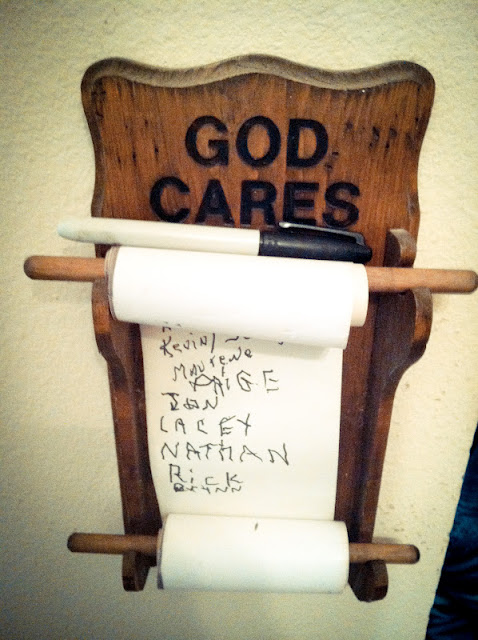 GOD
CARES
KEVIN
MAUREND
PAIGE
DON
LACEY
NATHAN
RICK
BRYNN